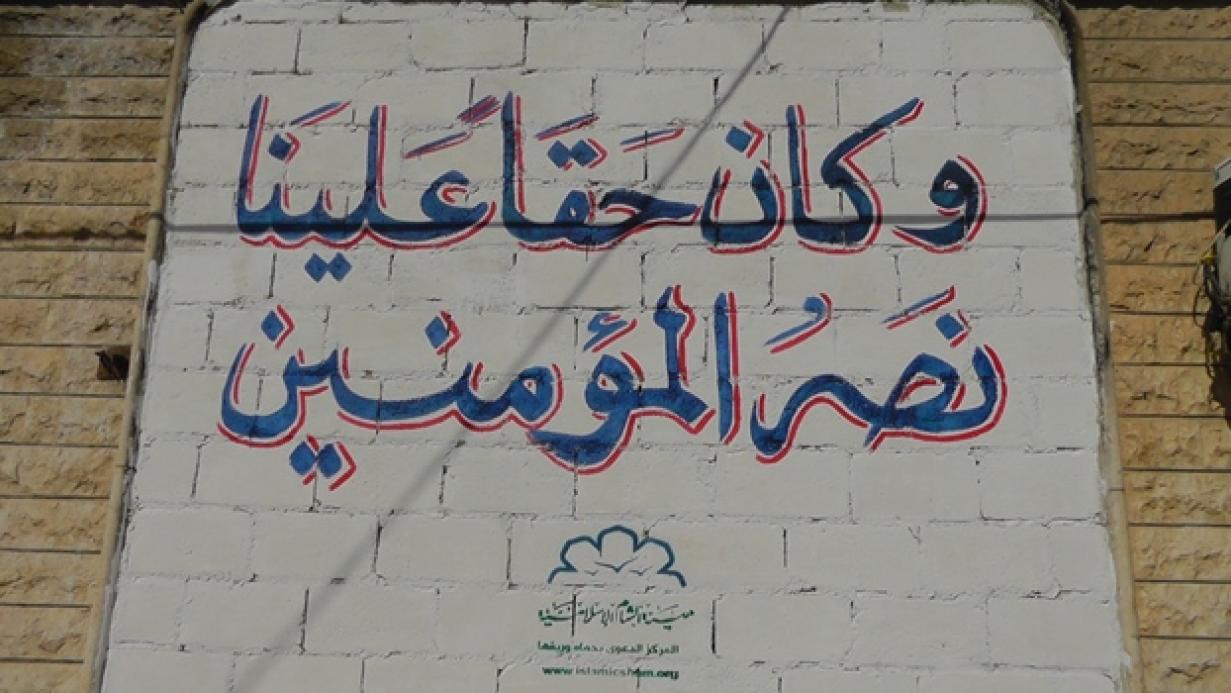 و كان حقاً عَلينَا
نصَرُ المؤمنين
هيئة الشام الإسلامية
المركز الدعوي بحماه وريفها
www.islamicsham.org